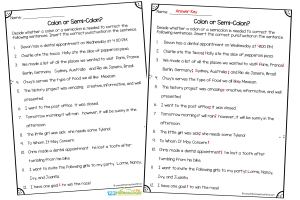 Name:
Colon or Semi-Colon?
Decide whether a colon or a semicolon is needed to correct the
following sentences. Insert the correct punctuation in the sentence.
1. Devon has a dental appointment on Wednesday at 4 00 P.M.
2. Charlie ate the tacos Holly ate the slice of pepperoni pizza.
3. We made a list of all the places we wanted to visit Paris, France
Berlin, Germany Sydney, Australia and Rio de Janeiro, Brazil.
4. Chuy's serves the type of food we all like Mexican.
5. The history project was amazing creative, informative, and well-
presented.
6. I went to the post office it was closed.
7. Tomorrow morning I will run however, it will be sunny in the
afternoon.
8. The little girl was sad she needs some Tylenol.
9. To Whom It May Concern
10. Chris made a dental appointment he lost a tooth after
tumbling from his bike.
11. I want to invite the following girls to my party Lorrie, Nancy,
Ivy, and Juanita.
12. I have one goal to win the race!
Name: Answer Key
Colon or Semi-Colon?
Decide whether a colon or a semicolon is needed to correct the
following sentences. Insert the correct punctuation in the sentence.
1. Devon has a dental appointment on Wednesday at 4:00 P.M.
2. Charlie ate the tacos; Holly ate the slice of pepperoni pizza.
3. We made a list of all the places we wanted to visit: Paris, France;
Berlin, Germany; Sydney, Australia; and Rio de Janeiro, Brazil.
4. Chuy's serves the type of food we all like: Mexican.
5. The history project was amazing: creative, informative, and well-
presented.
6. I went to the post office; it was closed.
7. Tomorrow morning it will rain; however, it will be sunny in the
afternoon.
8. The little girl was sad; she needs some Tylenol.
9. To Whom It May Concern:
10. Chris made a dental appointment; he lost a tooth after
tumbling from his bike.
11. I want to invite the following girls to my party: Lorrie, Nancy,
Ivy, and Juanita.
12. I have one goal: to win the race!